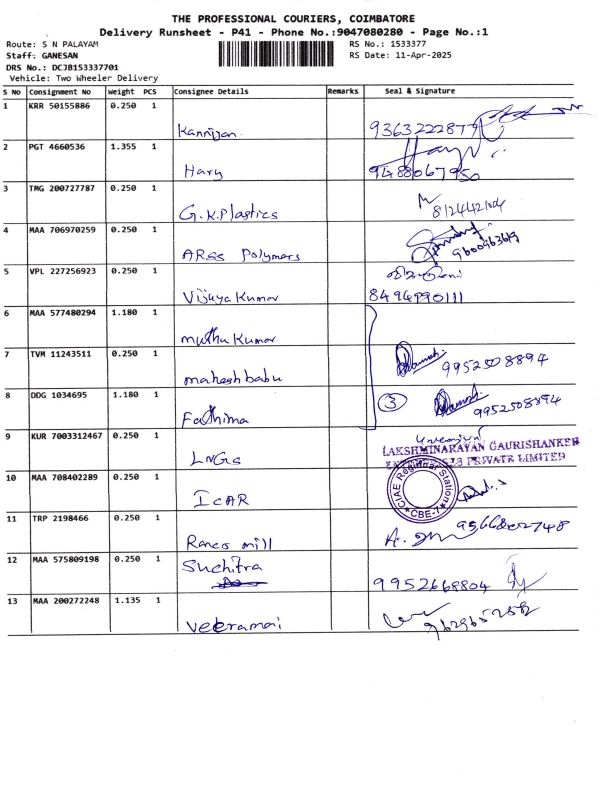 THE PROFESSIONAL COURIERS, COIMBATORE
Delivery Runsheet - P41 - Phone No.:9047080280 - Page No.:1
Route: S N PALAYAM
RS No.: 1533377
Staff: GANESAN
RS Date: 11-Apr-2025
DRS No.: DCJB153337701
Vehicle: Two Wheeler Delivery
S No Consignment No Weight PCS Consignee Details Remarks Seal & Signature
1 KRR 50155886 0.250 1
Kannijan 9363222877
2 PGT 4660536 1.355 1
Hary 9488067950
3 TMG 200727787 0.250 1
G.K.Plastics
4 MAA 706970259 0.250 1
ARGS Polymers 9600963619
5 VPL 227256923 0.250 1
Vijaya Kumar
6 MAA 577480294 1.180 1
muthu Kumar
7 TVM 11243511 0.250 1
maheshbabu 9952508894
8 DDG 1034695 1.180 1
Fathima 3 9952508894
9 KUR 7003312467 0.250 1
LNGS
LAKSHMINARAYAN GAURISHANKER
PRIVATE LIMITED
10 MAA 708402289 0.250 1
ICAR
CIAE Regional Station
CBE-7
11 TRP 2198466 0.250 1
mill
12 MAA 575809198 0.250 1
Suchitra
9952668804
13 MAA 200272248 1.135 1
Veeramai